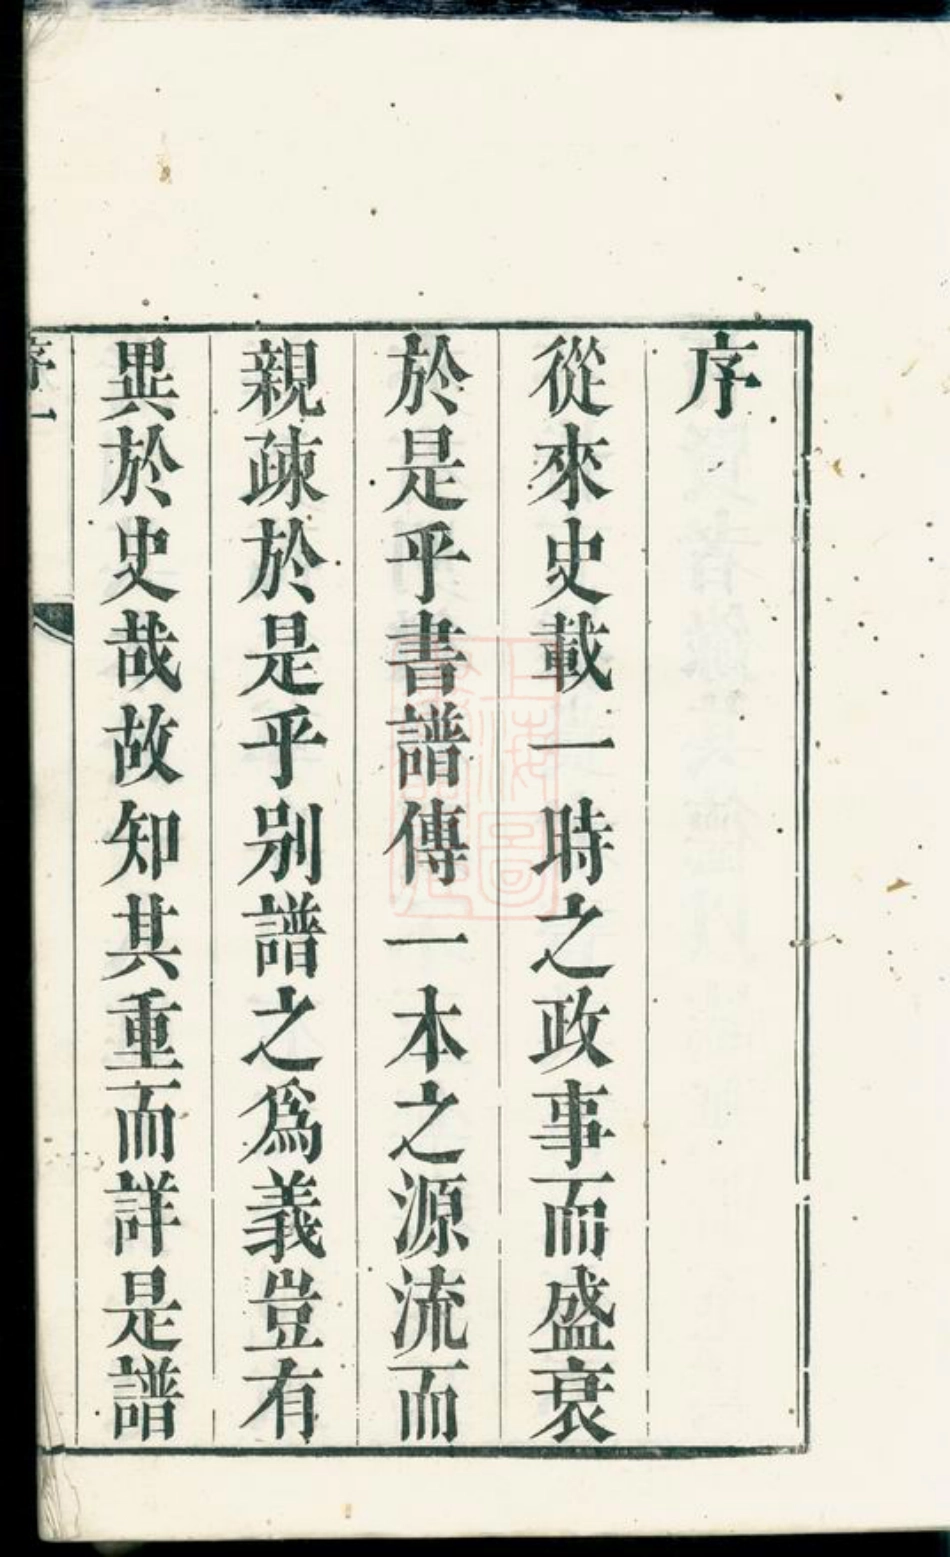 序
從來史載一時之政事而盛衰
於是乎書譜傳一本之源流而
親疎於是乎别譜之爲義豈有
異於史哉故知其重而詳是譜
序一